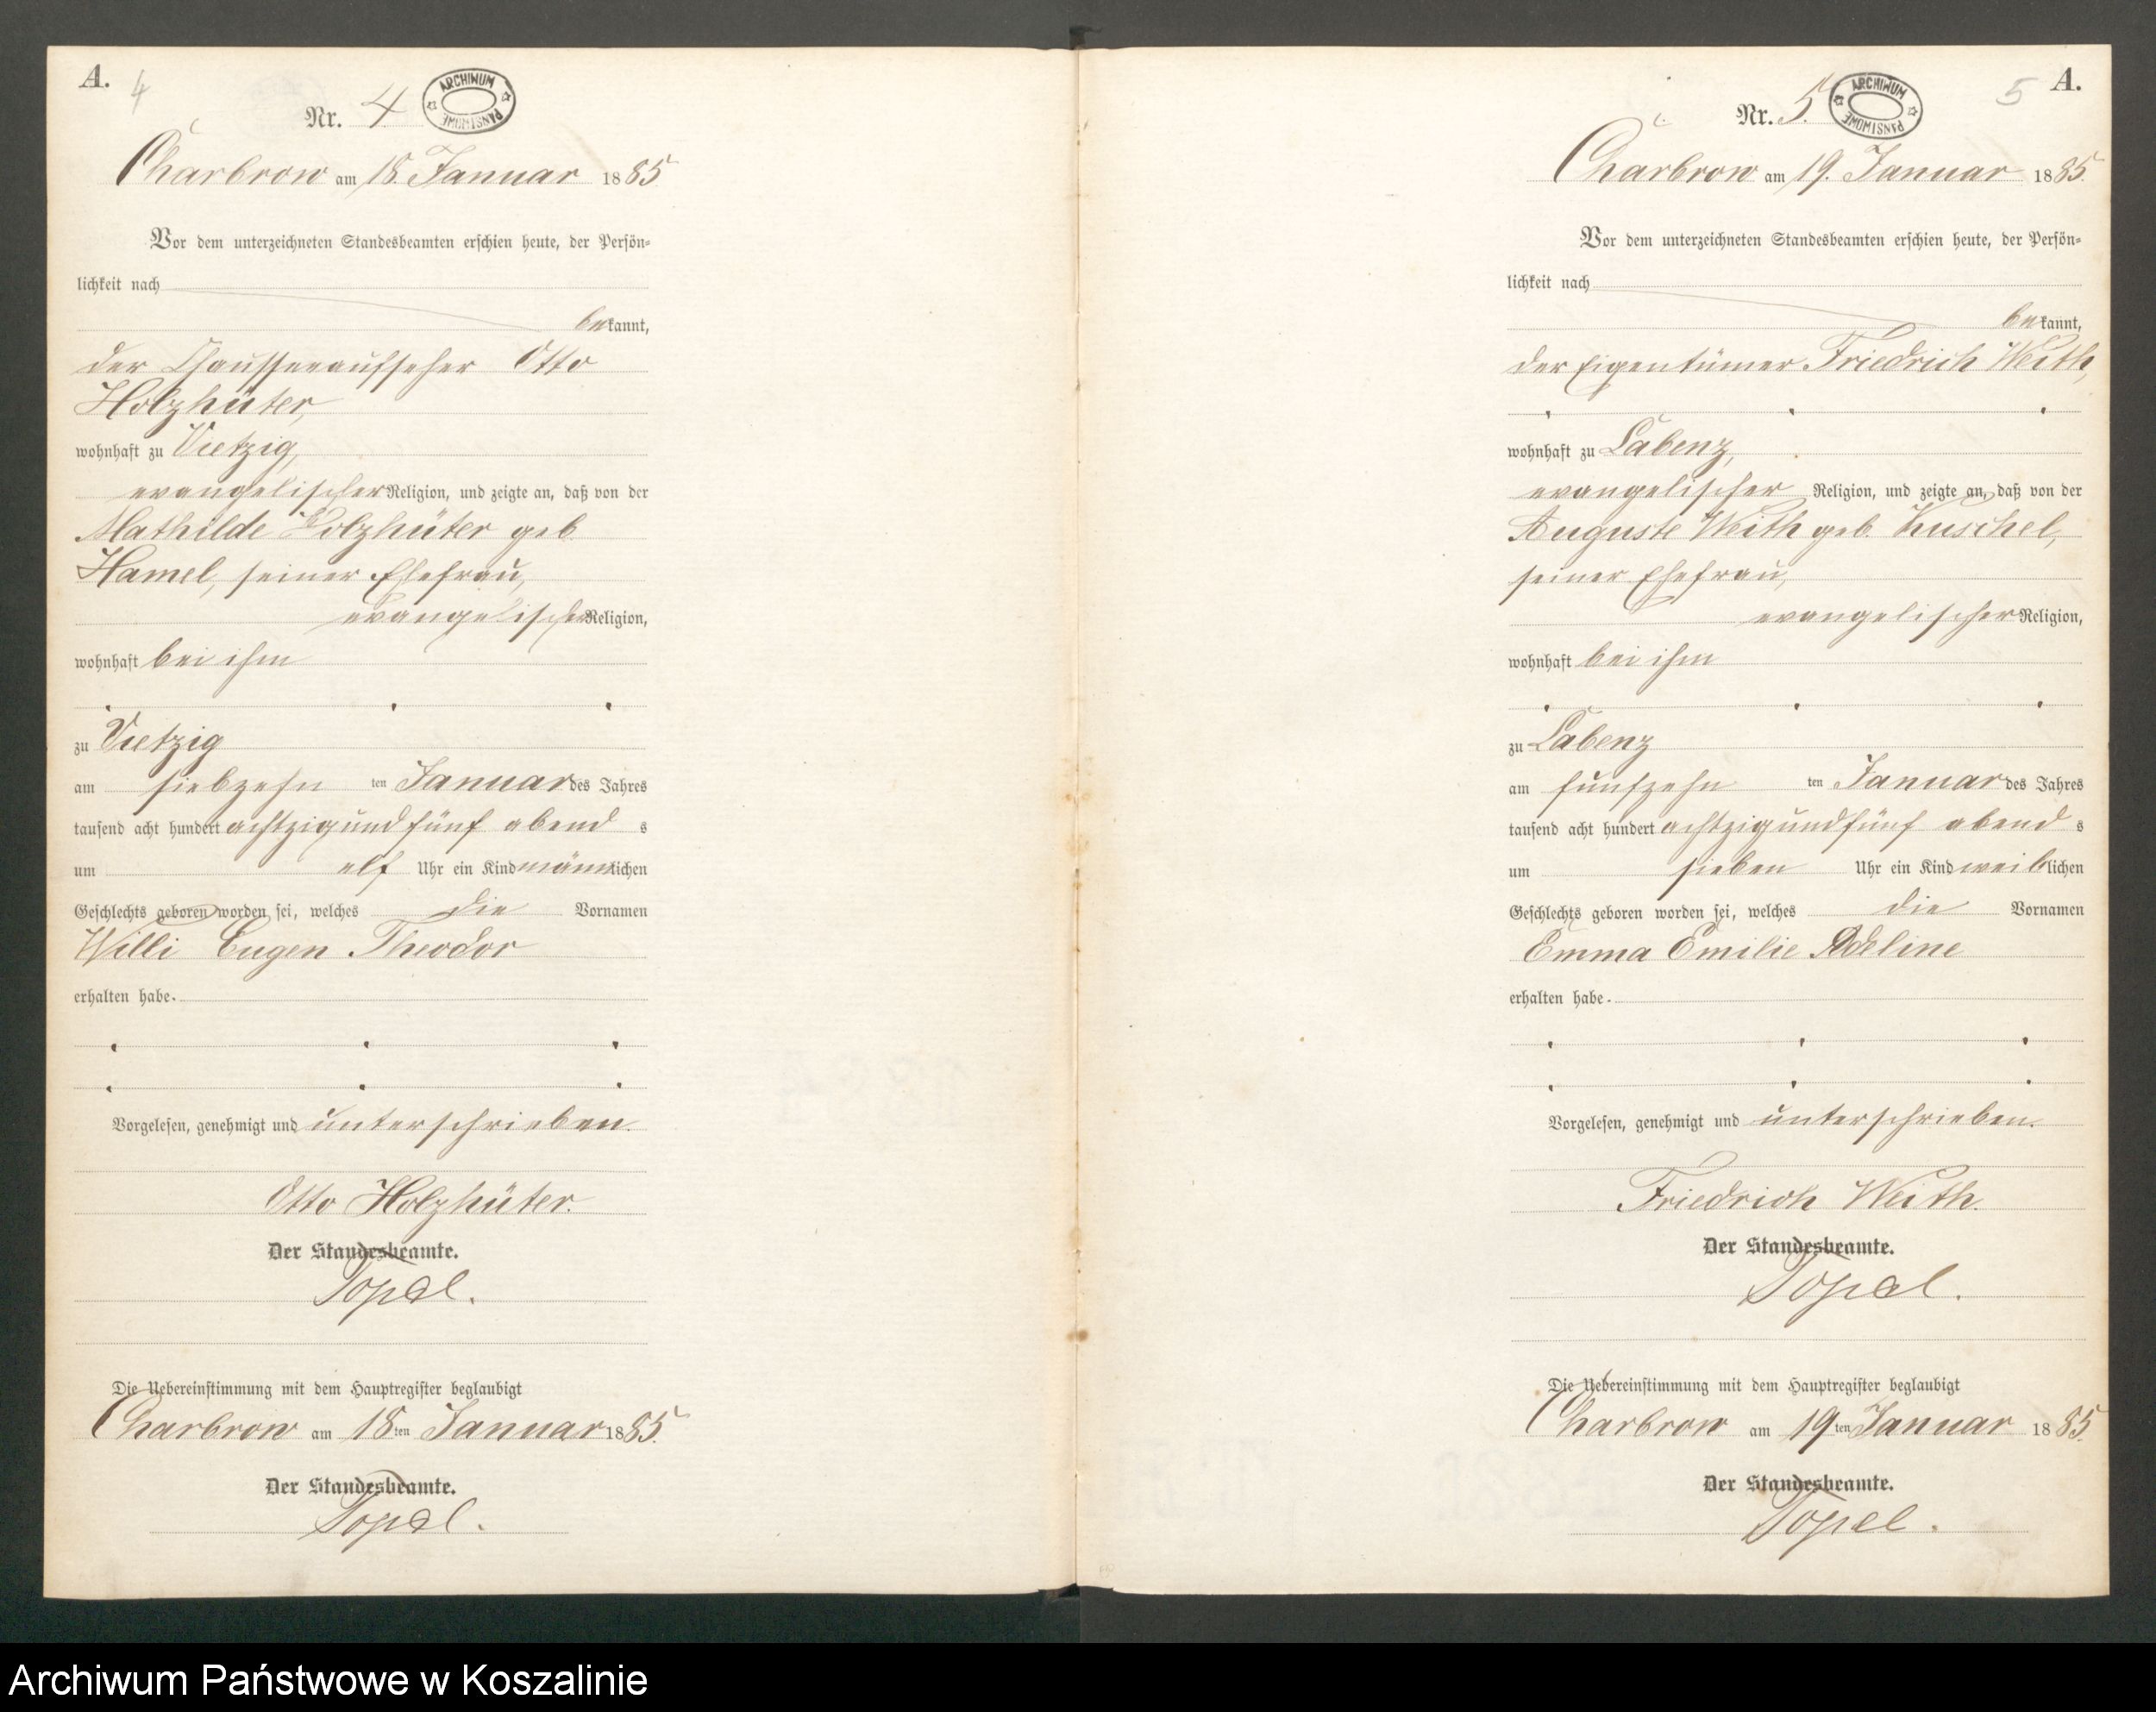 A.
4
Nr. 4
ARCHIWUM PAŃSTWOWE
Charbrow am 18. Januar 1885
Vor dem unterzeichneten Standesbeamten erschien heute, der Persön-
lichkeit nach
bekannt,
der Chausseeaufseher Otto
Holzhüter,
wohnhaft zu Vietzig,
evangelischer Religion, und zeigte an, daß von der
Mathilde Holzhüter geb.
Hamel, seiner Ehefrau,
evangelischer Religion,
wohnhaft bei ihm
zu Vietzig
am siebzehn ten Januar des Jahres
tausend acht hundert achtzig und fünf abend s
um elf Uhr ein Kind männlichen
Geschlechts geboren worden sei, welches die Vornamen
Willi Eugen Theodor
erhalten habe.
Vorgelesen, genehmigt und unterschrieben.
Otto Holzhüter.
Der Standesbeamte.
Topel.
Die Uebereinstimmung mit dem Hauptregister beglaubigt
Charbrow am 18ten Januar 1885.
Der Standesbeamte.
Topel.
5
A.
Nr. 5.
ARCHIWUM PAŃSTWOWE
Charbrow am 19. Januar 1885.
Vor dem unterzeichneten Standesbeamten erschien heute, der Persön-
lichkeit nach
bekannt,
der Eigentümer Friedrich Weith,
wohnhaft zu Labenz,
evangelischer Religion, und zeigte an, daß von der
Auguste Weith geb. Kuschel,
seiner Ehefrau,
evangelischer Religion,
wohnhaft bei ihm
zu Labenz
am fünfzehn ten Januar des Jahres
tausend acht hundert achtzig und fünf abend s
um sieben Uhr ein Kind weiblichen
Geschlechts geboren worden sei, welches die Vornamen
Emma Emilie Adeline
erhalten habe.
Vorgelesen, genehmigt und unterschrieben.
Friedrich Weith.
Der Standesbeamte.
Topel.
Die Uebereinstimmung mit dem Hauptregister beglaubigt
Charbrow am 19ten Januar 1885.
Der Standesbeamte.
Topel.
Archiwum Państwowe w Koszalinie